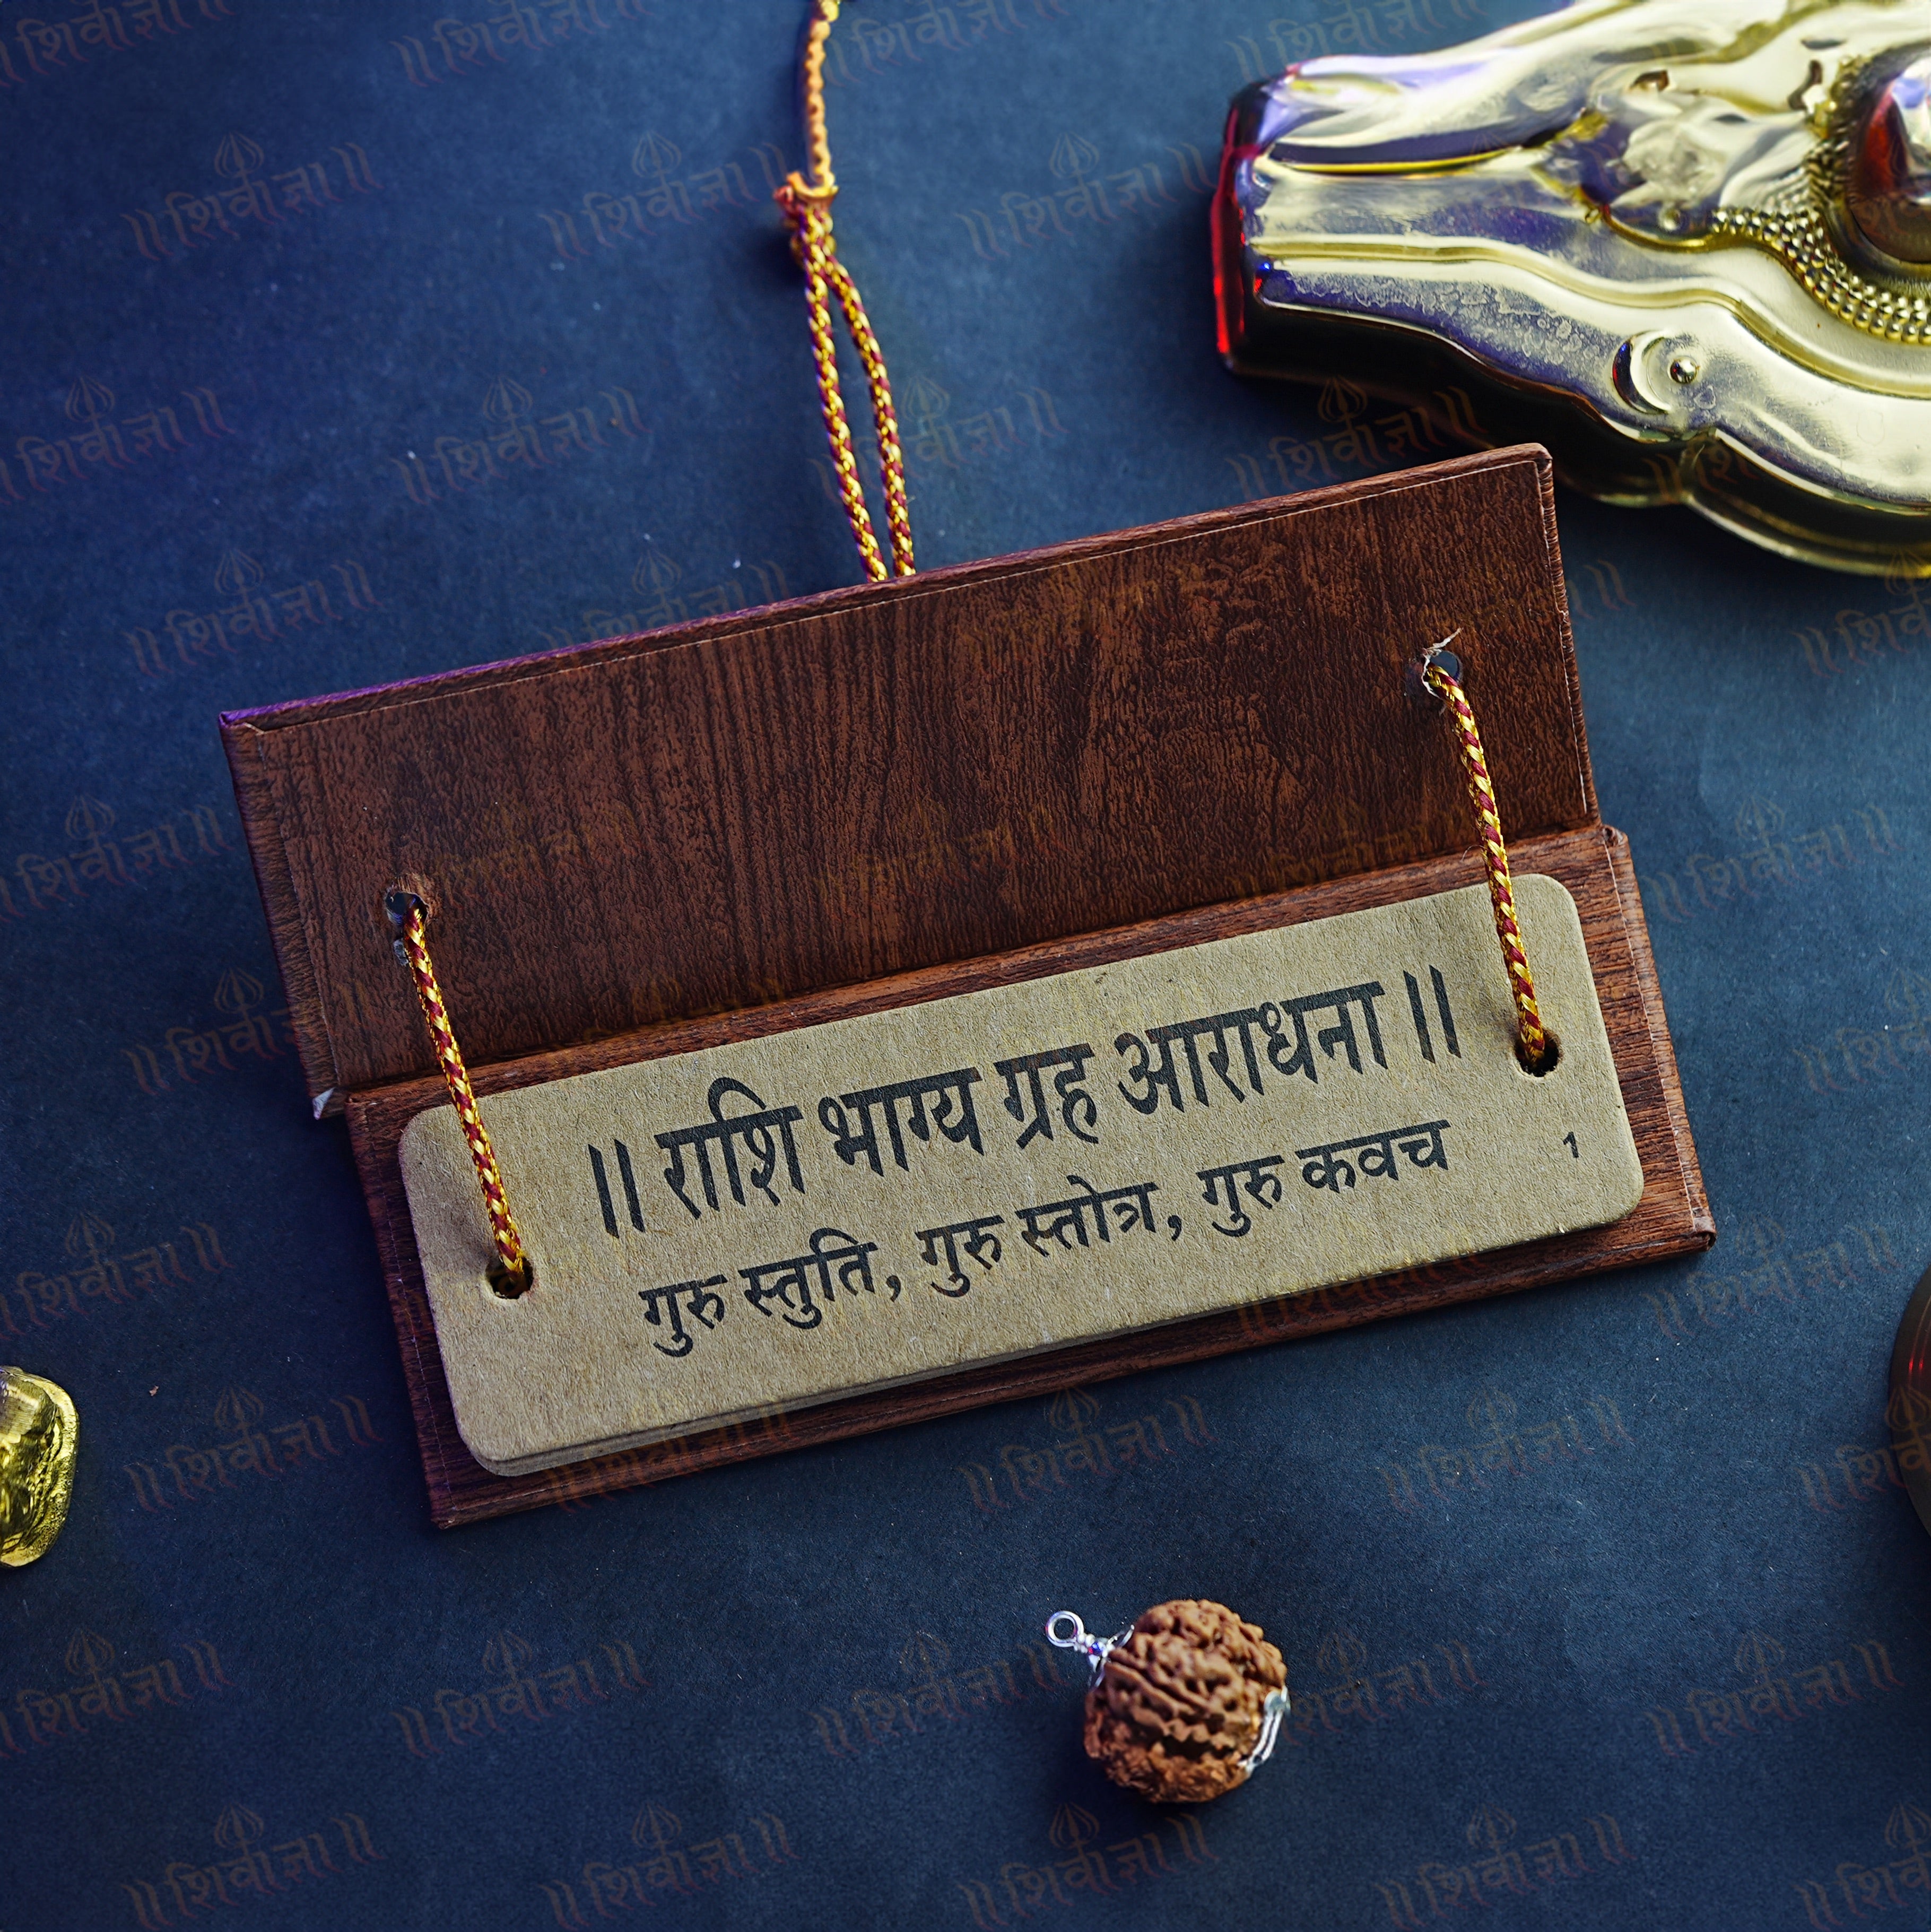 ॥ राशि भाग्य ग्रह आराधना ॥
गुरु स्तुति, गुरु स्तोत्र, गुरु कवच
1
॥ शिवोज्ञा ॥